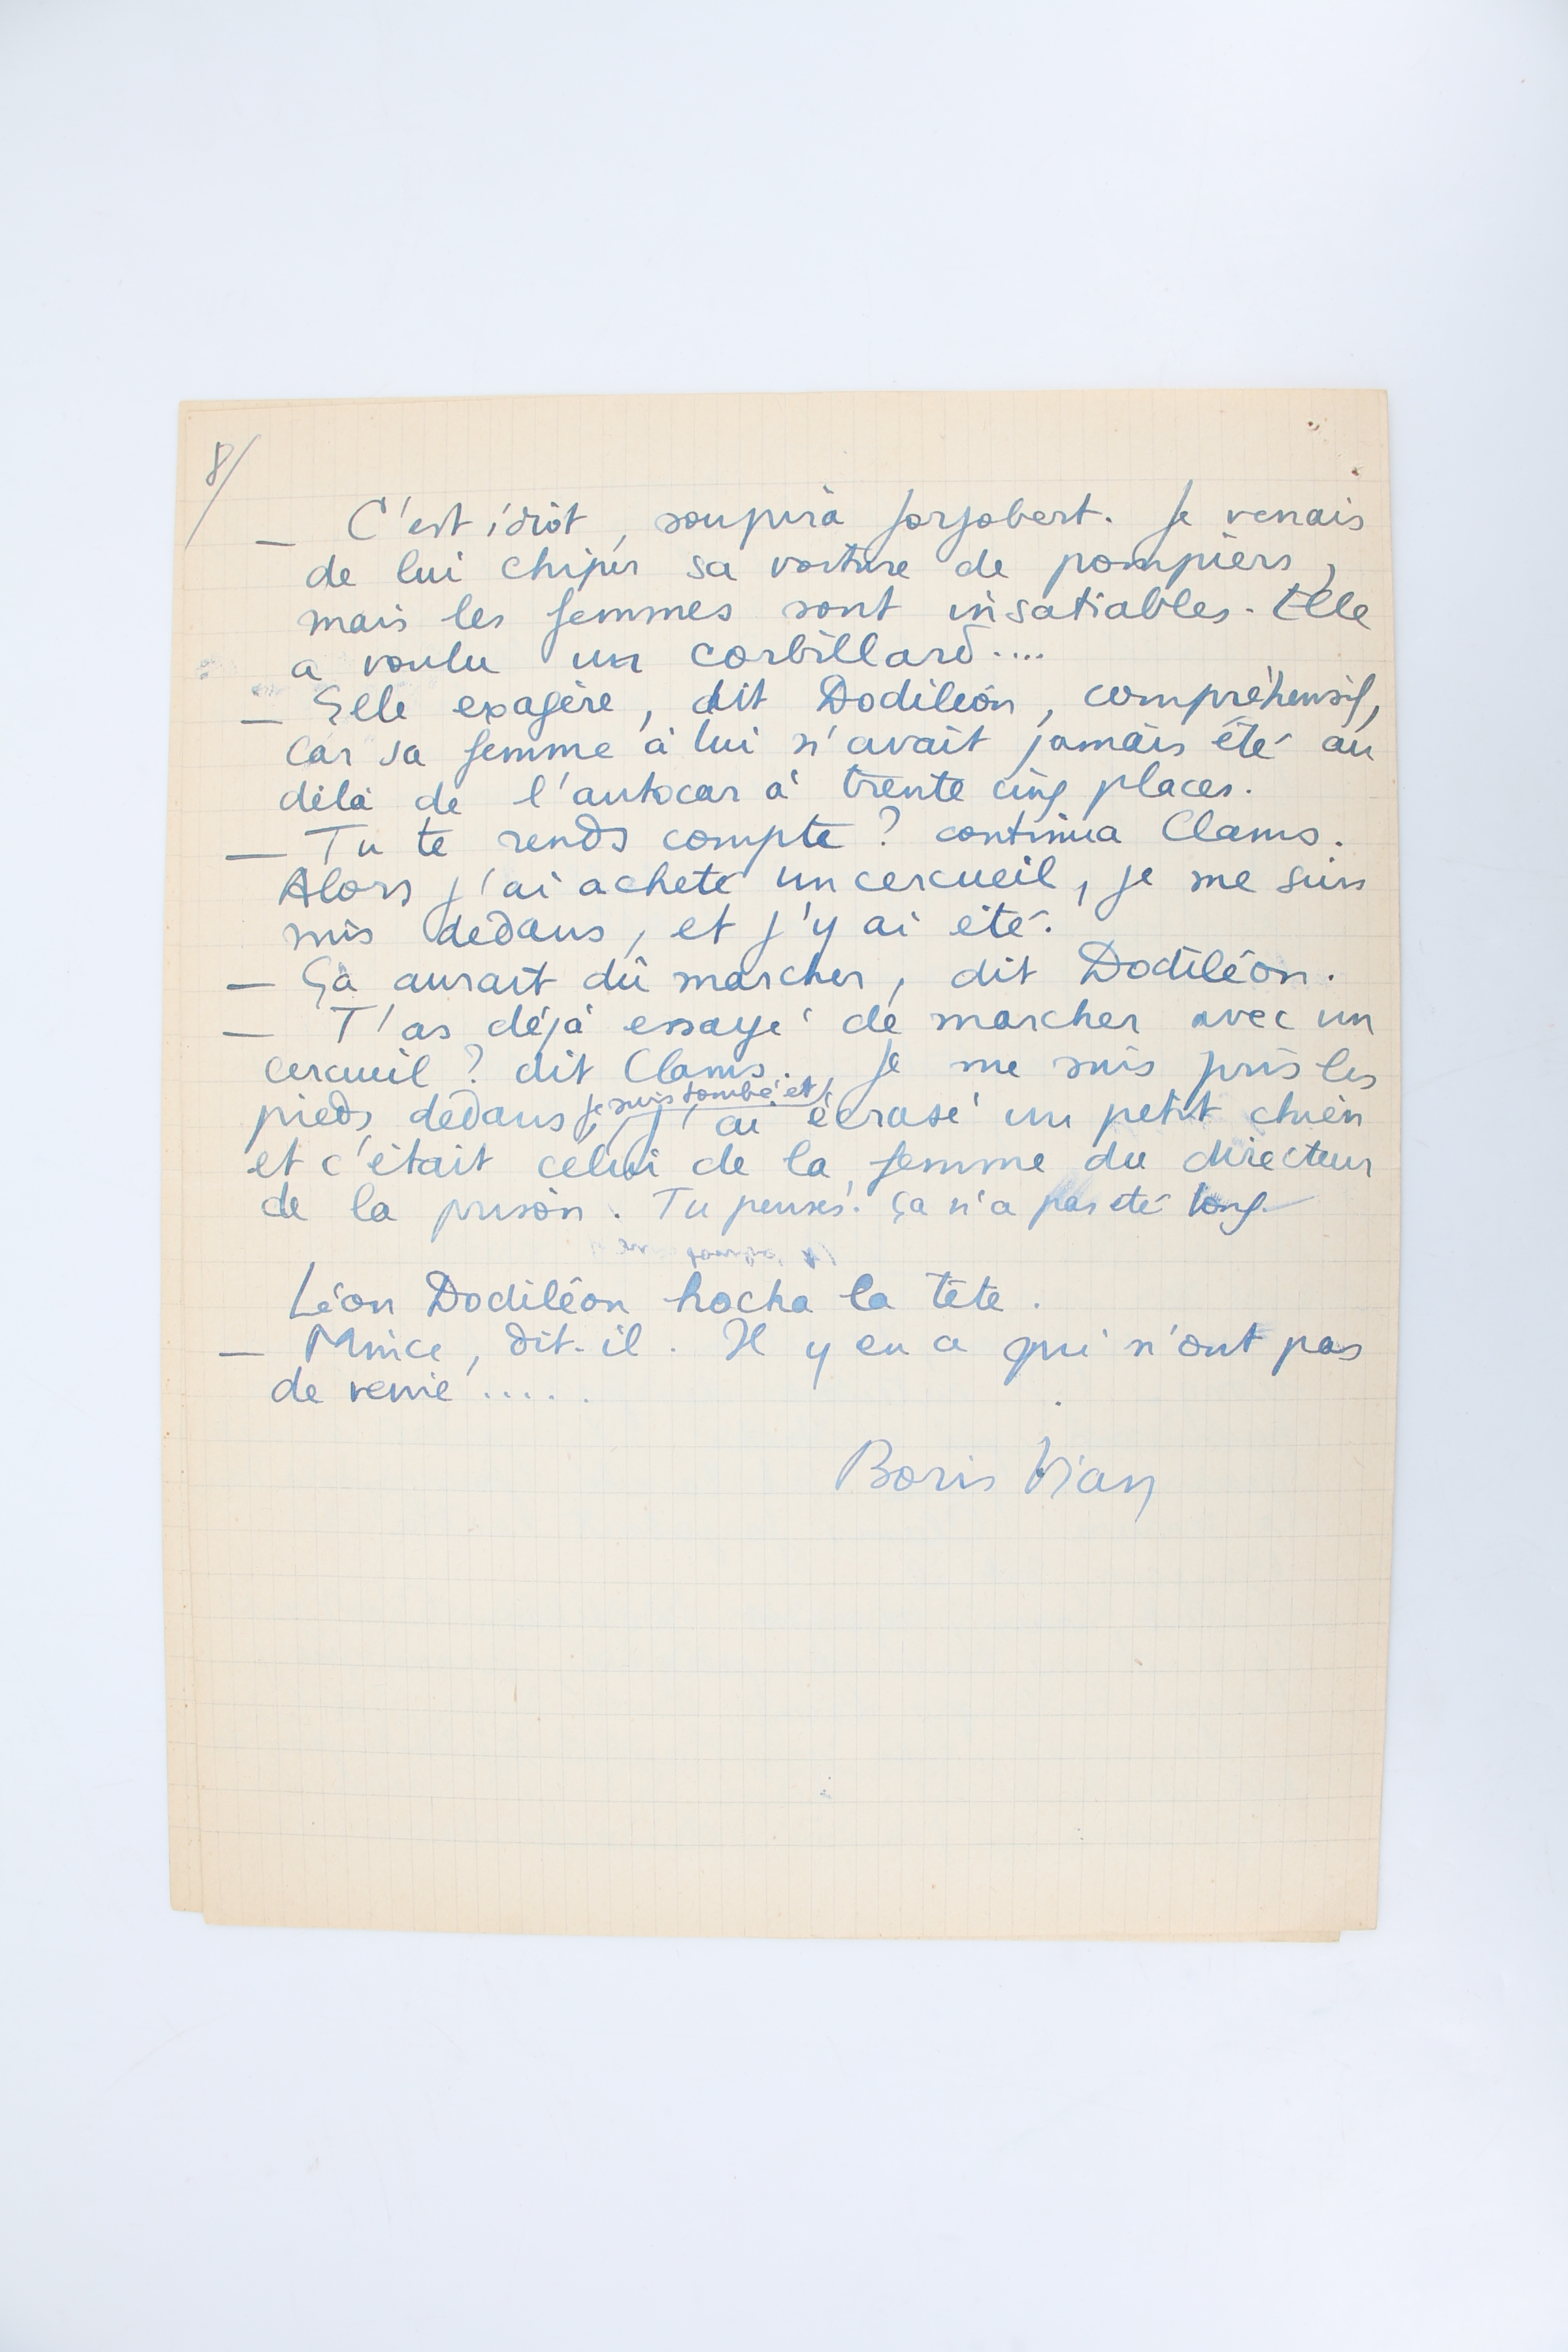 8/
— C'est idiot, soupira Jorjobert. Je venais
de lui chiper sa voiture de pompiers,
mais les femmes sont insatiables. Elle
a voulu un corbillard....
— Elle exagère, dit Dodiléon, compréhensif,
car sa femme à lui n'avait jamais été au
delà de l'autocar à trente cinq places.
— Tu te rends compte ? continua Clams.
Alors j'ai acheté un cercueil, je me suis
mis dedans, et j'y ai été.
— Ça aurait dû marcher, dit Dodiléon.
— T'as déjà essayé de marcher avec un
cercueil ? dit Clams. Je me suis pris les
je suis tombé et
pieds dedans, j'ai écrasé un petit chien
et c'était celui de la femme du directeur
de la prison. Tu penses! ça n'a pas été long.
Léon Dodiléon hocha la tête.
— Mince, dit-il. Il y en a qui n'ont pas
de veine.....
Boris Vian